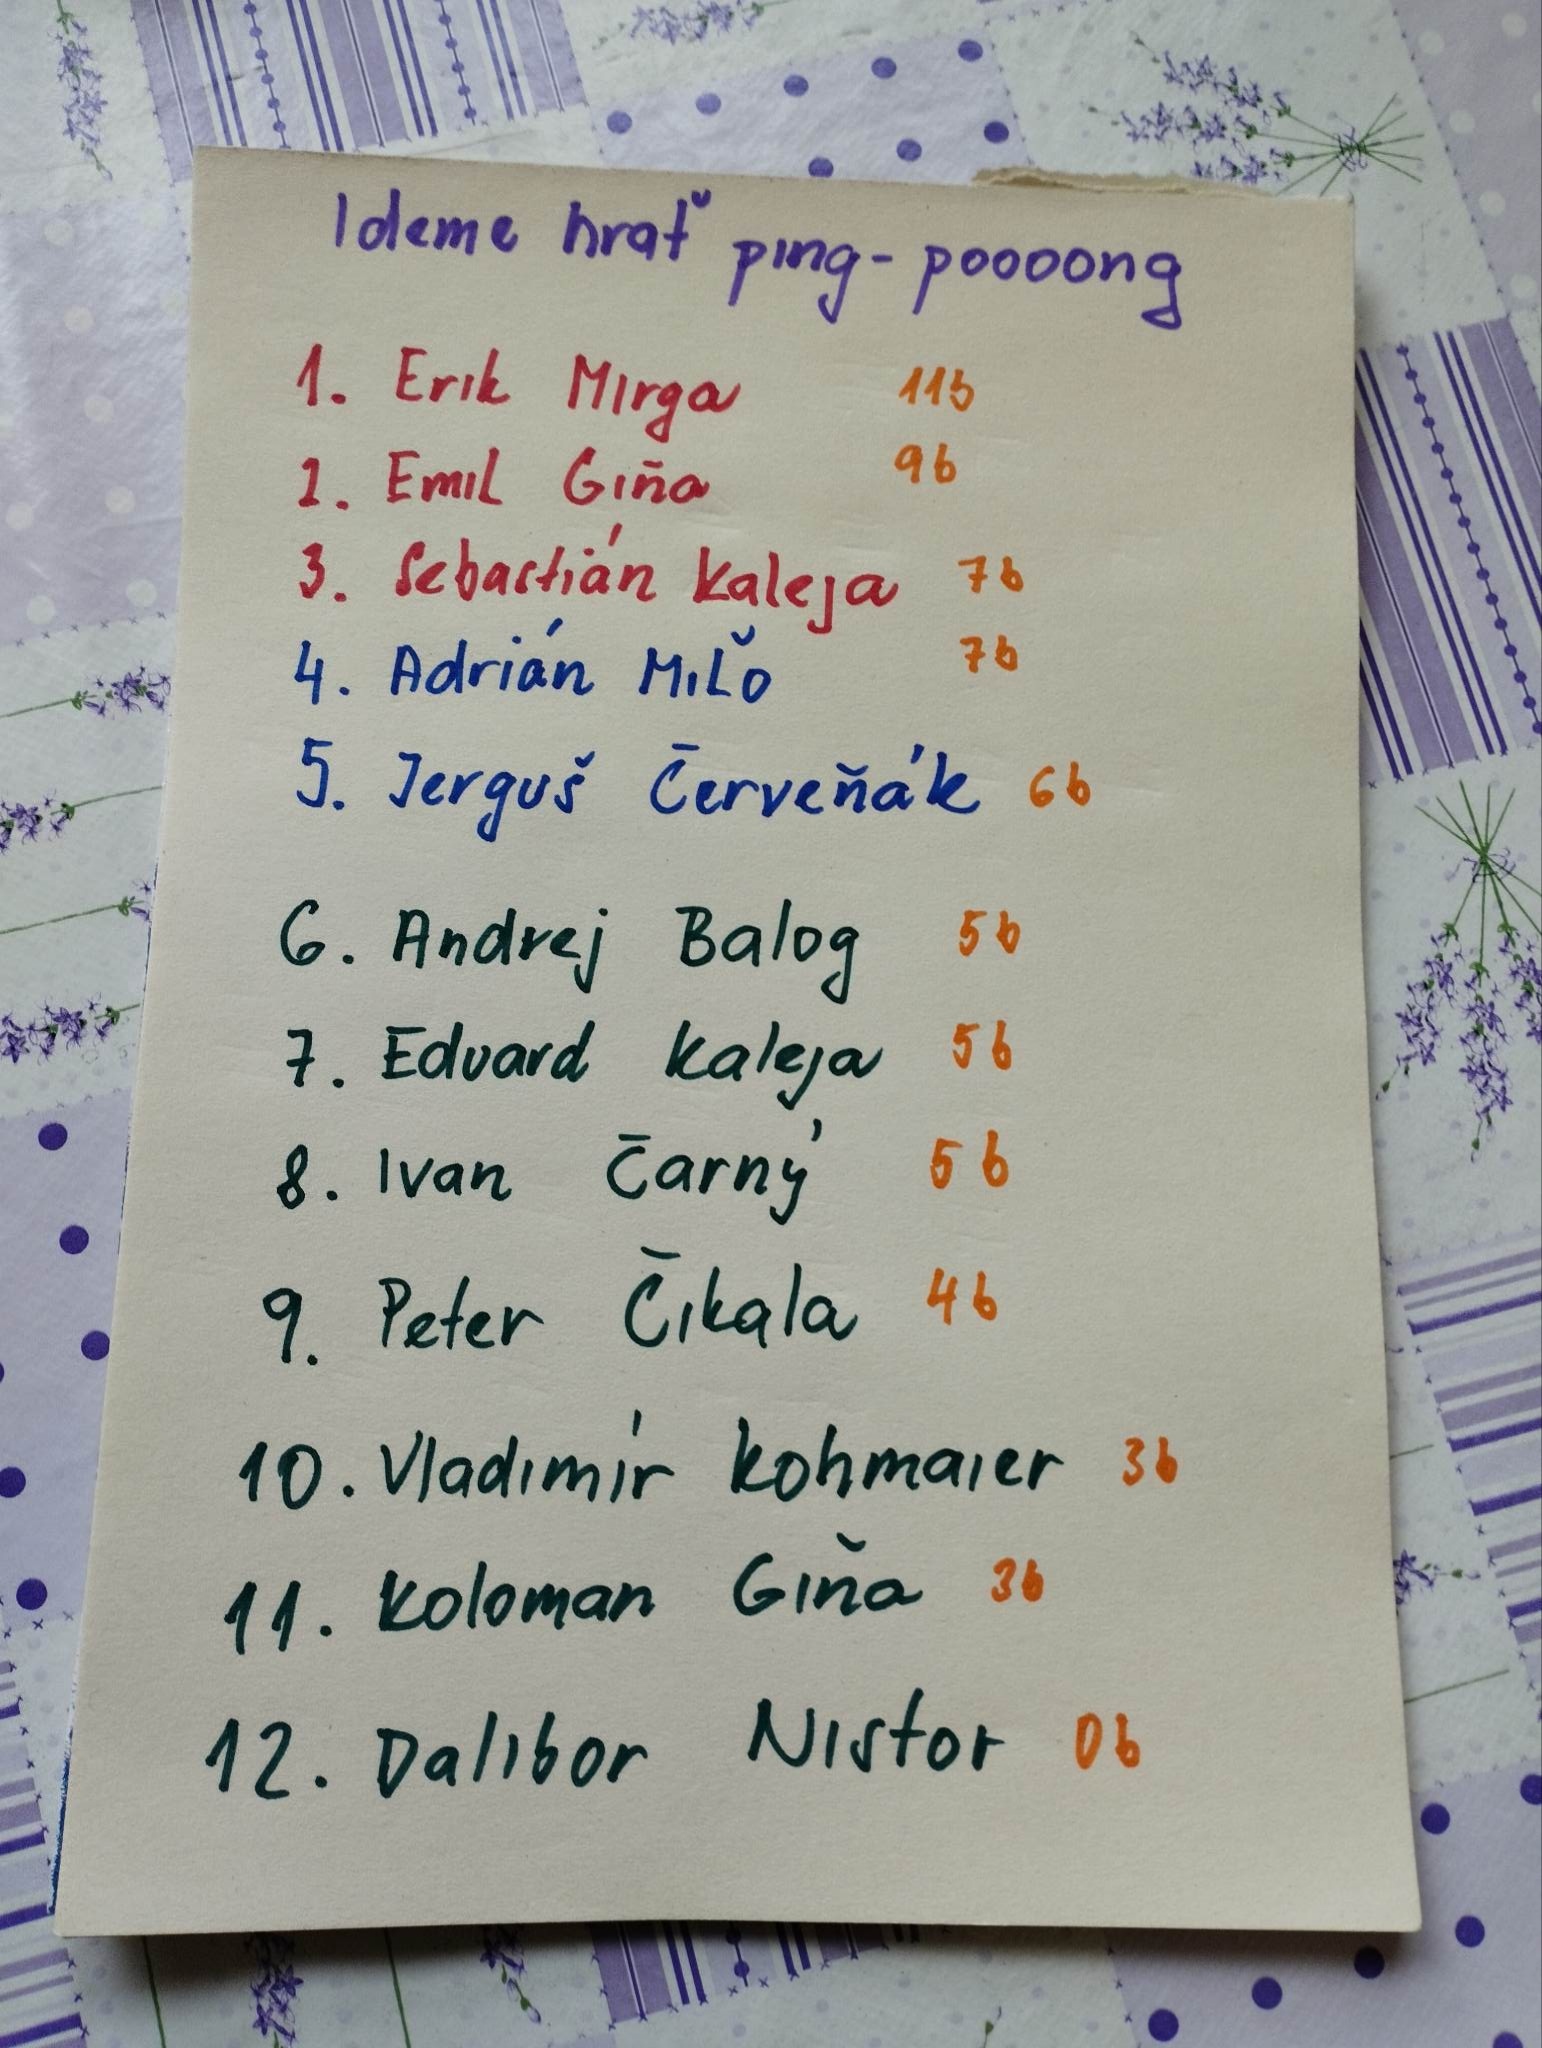 Ideme hrať ping-poooong
1. Erik Mirga 11b
2. Emil Giňa 9b
3. Sebastián Kaleja 7b
4. Adrián Miľo 7b
5. Jerguš Červeňák 6b
6. Andrej Balog 5b
7. Eduard Kaleja 5b
8. Ivan Čarný 5b
9. Peter Čikala 4b
10. Vladimír Kohmaier 3b
11. Koloman Giňa 3b
12. Dalibor Nistor 0b